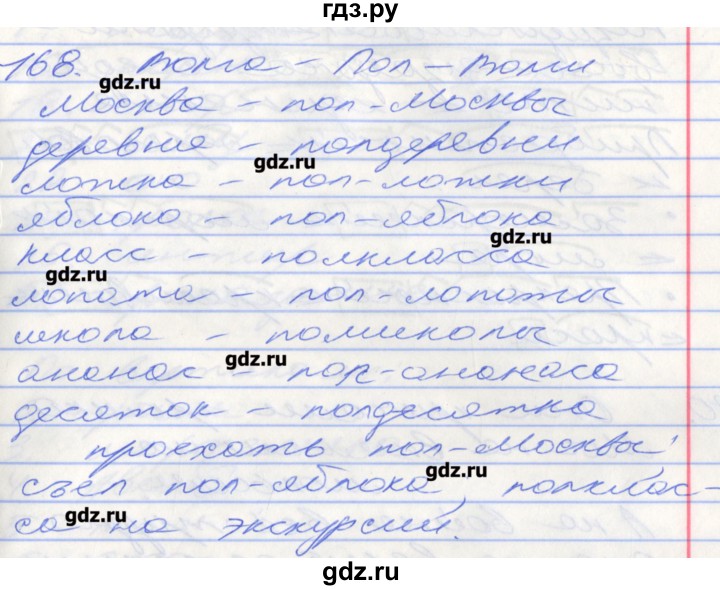 гдз.ру
168. Волга - Пол-Волги
gdz.ru
Москва - пол-Москвы
деревня - полдеревни
gdz.ru
ложка - пол-ложки
яблоко - пол-яблока
gdz.ru
класс - полкласса
gdz.ru
лопата - пол-лопаты
школа - полшколы
gdz.ru
ананас - пол-ананаса
десяток - полдесятка
проехать пол-Москвы,
gdz.ru
съел пол-яблока, полклас-
са на экскурсии.
gdz.ru
gdz.ru